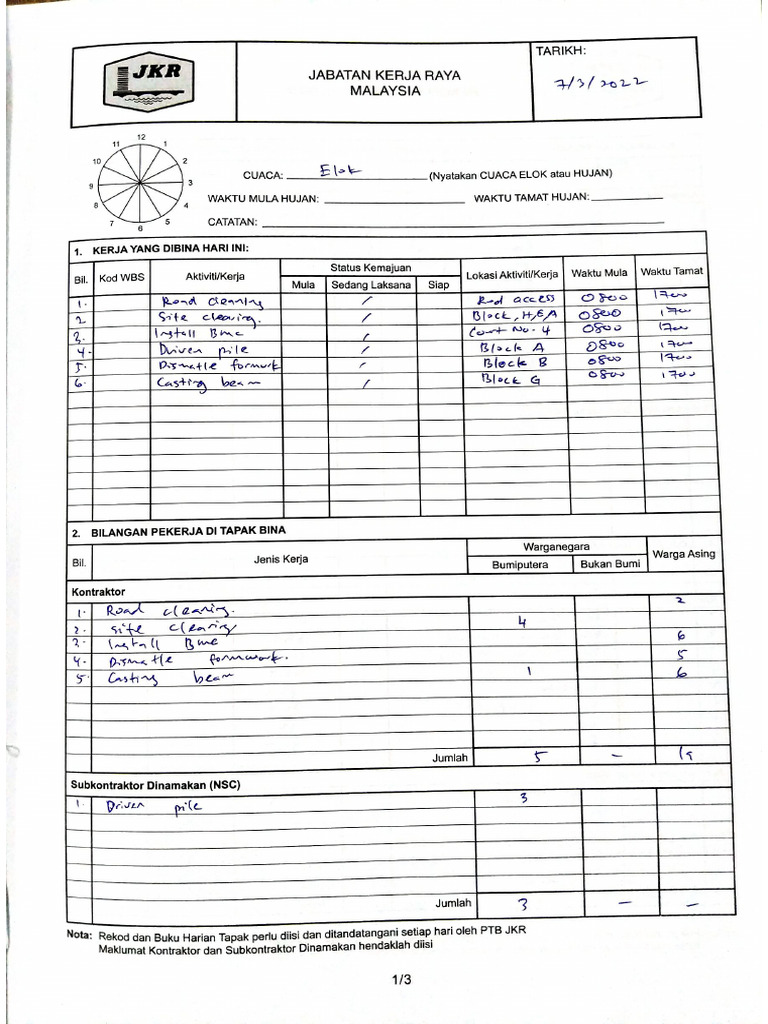 JKR
JABATAN KERJA RAYA
MALAYSIA
TARIKH:
7/3/2022
12
11 1
10 2
9 3
8 4
7 5
6
CUACA: Elok (Nyatakan CUACA ELOK atau HUJAN)
WAKTU MULA HUJAN: WAKTU TAMAT HUJAN:
CATATAN:
1. KERJA YANG DIBINA HARI INI:
Bil. Kod WBS Aktiviti/Kerja Status Kemajuan Lokasi Aktiviti/Kerja Waktu Mula Waktu Tamat
Mula Sedang Laksana Siap
1. Road cleaning / Rod access 0800 1700
2 Site clearing. / Block, H,E,A 0800 1700
3. Install Bmc / Cort No. 4 0800 1700
4. Driven pile / Block A 0800 1700
5. Dismatle formwrk / Block B 0800 1700
6. Casting beam / Block G 0800 1700
2. BILANGAN PEKERJA DI TAPAK BINA
Bil. Jenis Kerja Warganegara Warga Asing
Bumiputera Bukan Bumi
Kontraktor
1. Road cleaning. 2
2. Site clearing 4
3. Install Bmc 6
4. Dismatle formwork. 5
5. Casting beam 1 6
Jumlah 5 - 19
Subkontraktor Dinamakan (NSC)
1. Driven pile 3
Jumlah 3 - -
Nota: Rekod dan Buku Harian Tapak perlu diisi dan ditandatangani setiap hari oleh PTB JKR
Maklumat Kontraktor dan Subkontraktor Dinamakan hendaklah diisi
1/3